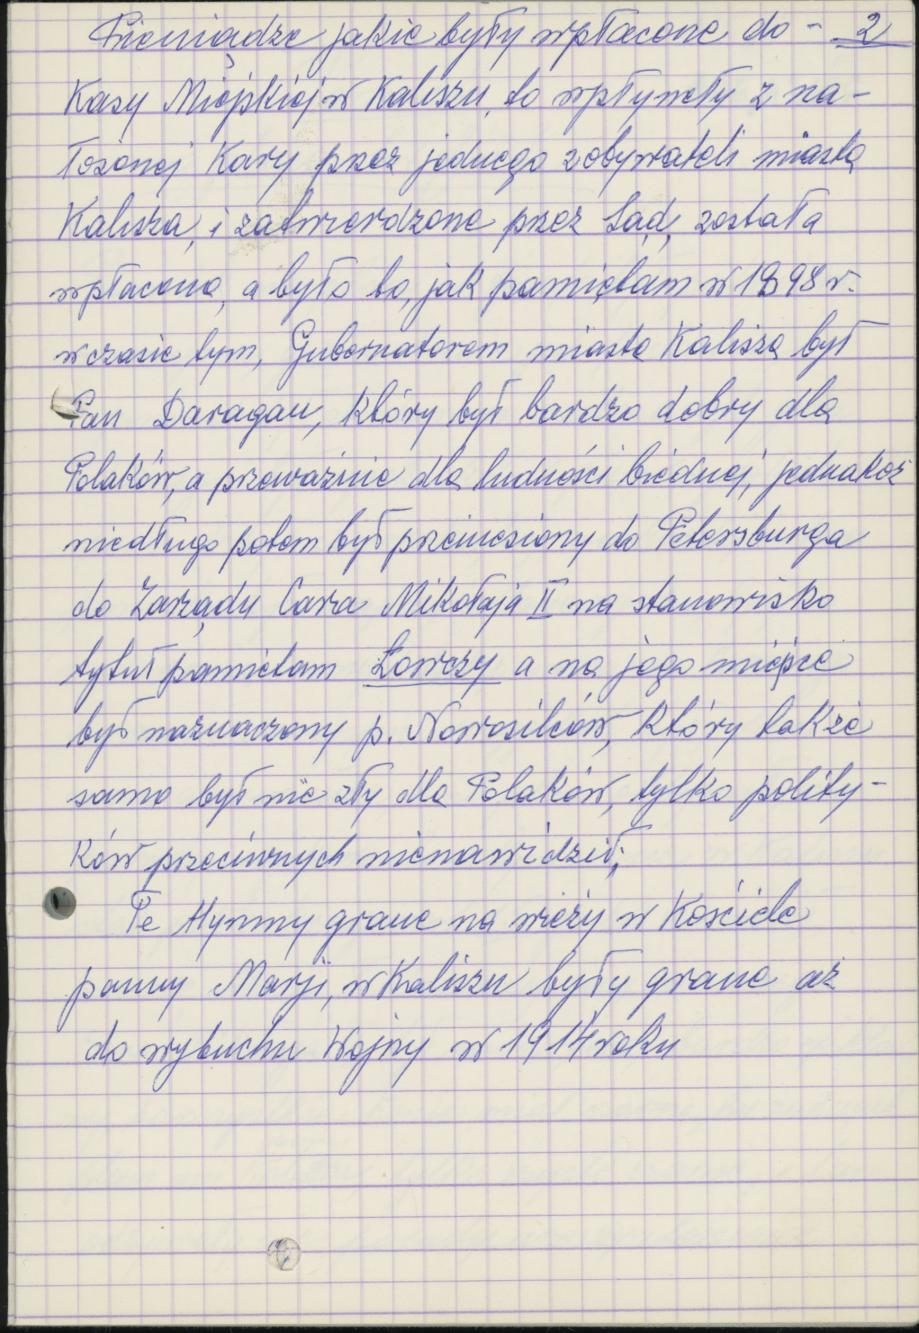 Pieniądze jakie były wpłacone do - 2
Kasy Miejskiej w Kaliszu, to wpłyneły z na-
łożonej Kary przez jednego z obywateli miasta
Kalisza, i zatwierdzone przez Sąd, została
wpłacona, a było to, jak pamiętam w 1898 r.
w czasie tym, Gubernatorem miasta Kalisza był
Pan Daragan, który był bardzo dobry dla
Polaków, a przeważnie dla ludności biednej, jednakoż
niedługo potem był przeniesiony do Petersburga
do Zarządu Cara Mikołaja II na stanowisko
tytuł pamietam Łowczy a na jego miejsce
był naznaczony p. Nowosilców, który także
samo był nie zły dla Polaków, tylko polity-
ków przeciwnych nienawidził;
Te Hymny grane na wieży w Kościele
panny Marji, w Kaliszu były grane aż
do wybuchu Wojny w 1914 roku